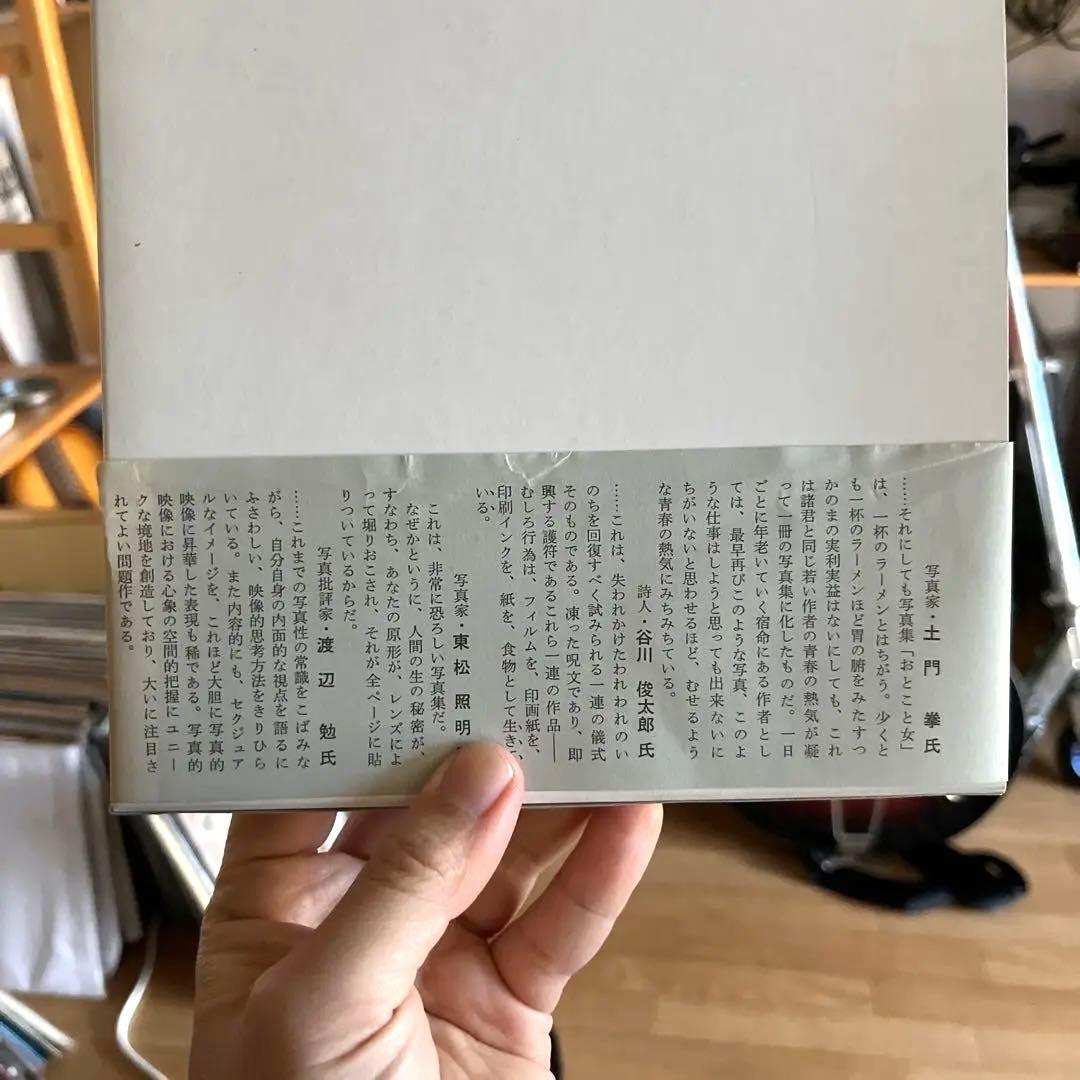 写真家・土門 拳氏
……それにしても写真集「おとこと女」
は、一杯のラーメンとはちがう。少くと
も一杯のラーメンほど胃の腑をみたすつ
かのまの実利実益はないにしても、これ
は諸君と同じ若い作者の青春の熱気が凝
って一冊の写真集に化したものだ。一日
ごとに年老いていく宿命にある作者とし
ては、最早再びこのような写真、このよ
うな仕事はしようと思っても出来ないに
ちがいないと思わせるほど、むせるよう
な青春の熱気にみちみちている。
詩人・谷川 俊太郎氏
……これは、失われかけたわれわれのい
のちを回復すべく試みられる一連の儀式
そのものである。凍った呪文であり、即
興する護符であるこれら一連の作品――
むしろ行為は、フィルムを、印画紙を、
印刷インクを、紙を、食物として生きて
いる。
写真家・東松 照明
これは、非常に恐ろしい写真集だ。
なぜかというに、人間の生の秘密が、
すなわち、あなたの原形が、レンズによ
って堀りおこされ、それが全ページに貼
りついているからだ。
写真批評家・渡辺 勉氏
……これまでの写真性の常識をこばみな
がら、自分自身の内面的な視点を語るに
ふさわしい、映像的思考方法をきりひら
いている。また内容的にも、セクジュア
ルなイメージを、これほど大胆に写真的
映像に昇華した表現も稀である。写真的
映像における心象の空間的把握にユニー
クな境地を創造しており、大いに注目さ
れてよい問題作である。